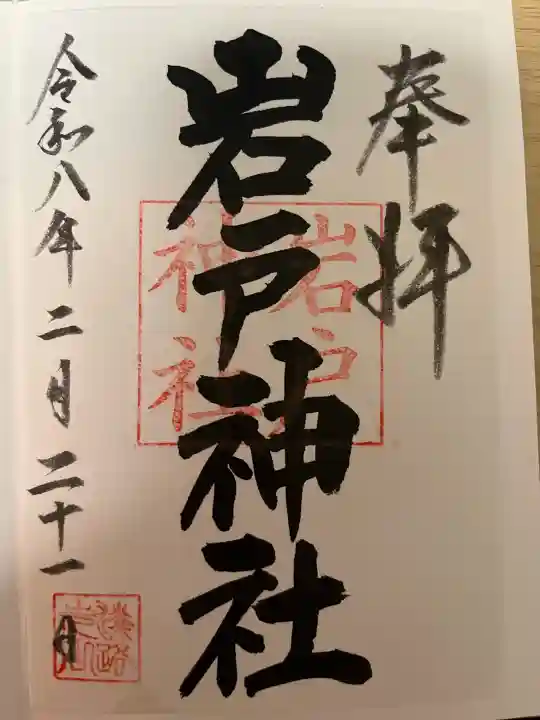 奉拝
岩戸神社
岩戸
神社
令和八年二月二十一日